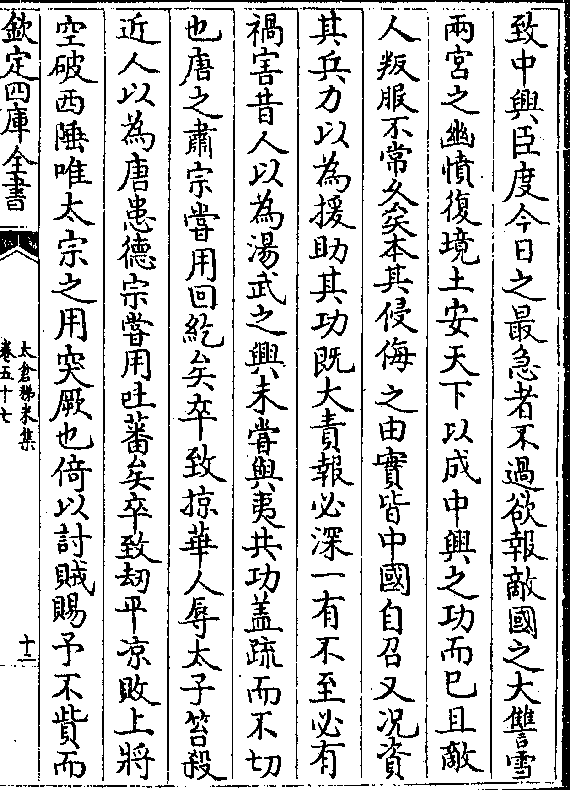 致中興臣度今日之最急者不過欲報敵國之大讐雪
兩宮之幽憤復境土安天下以成中興之功而已且敵
人叛服不常久矣本其侵侮之由實皆中國自召又况資
其兵力以為援助其功既大責報必深一有不至必有
禍害昔人以為湯武之興未嘗與夷共功盖疏而不切
也唐之肅宗嘗用回紇矣卒致掠華人辱太子笞殺
近人以為唐患德宗嘗用吐蕃矣卒致劫平凉敗上將
空破西陲唯太宗之用突厥也倚以討賊賜予不貲而
欽定四庫全書
太倉稊米集
卷五十七
十二